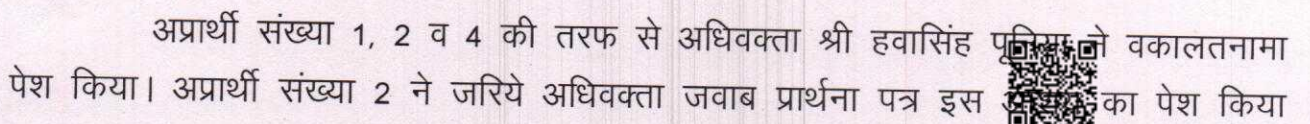 अप्रार्थी संख्या 1, 2 व 4 की तरफ से अधिवक्ता श्री हवासिंह ने वकालतनामा
पेश किया। अप्रार्थी संख्या 2 ने जरिये अधिवक्ता जवाब प्रार्थना पत्र इस का पेश किया